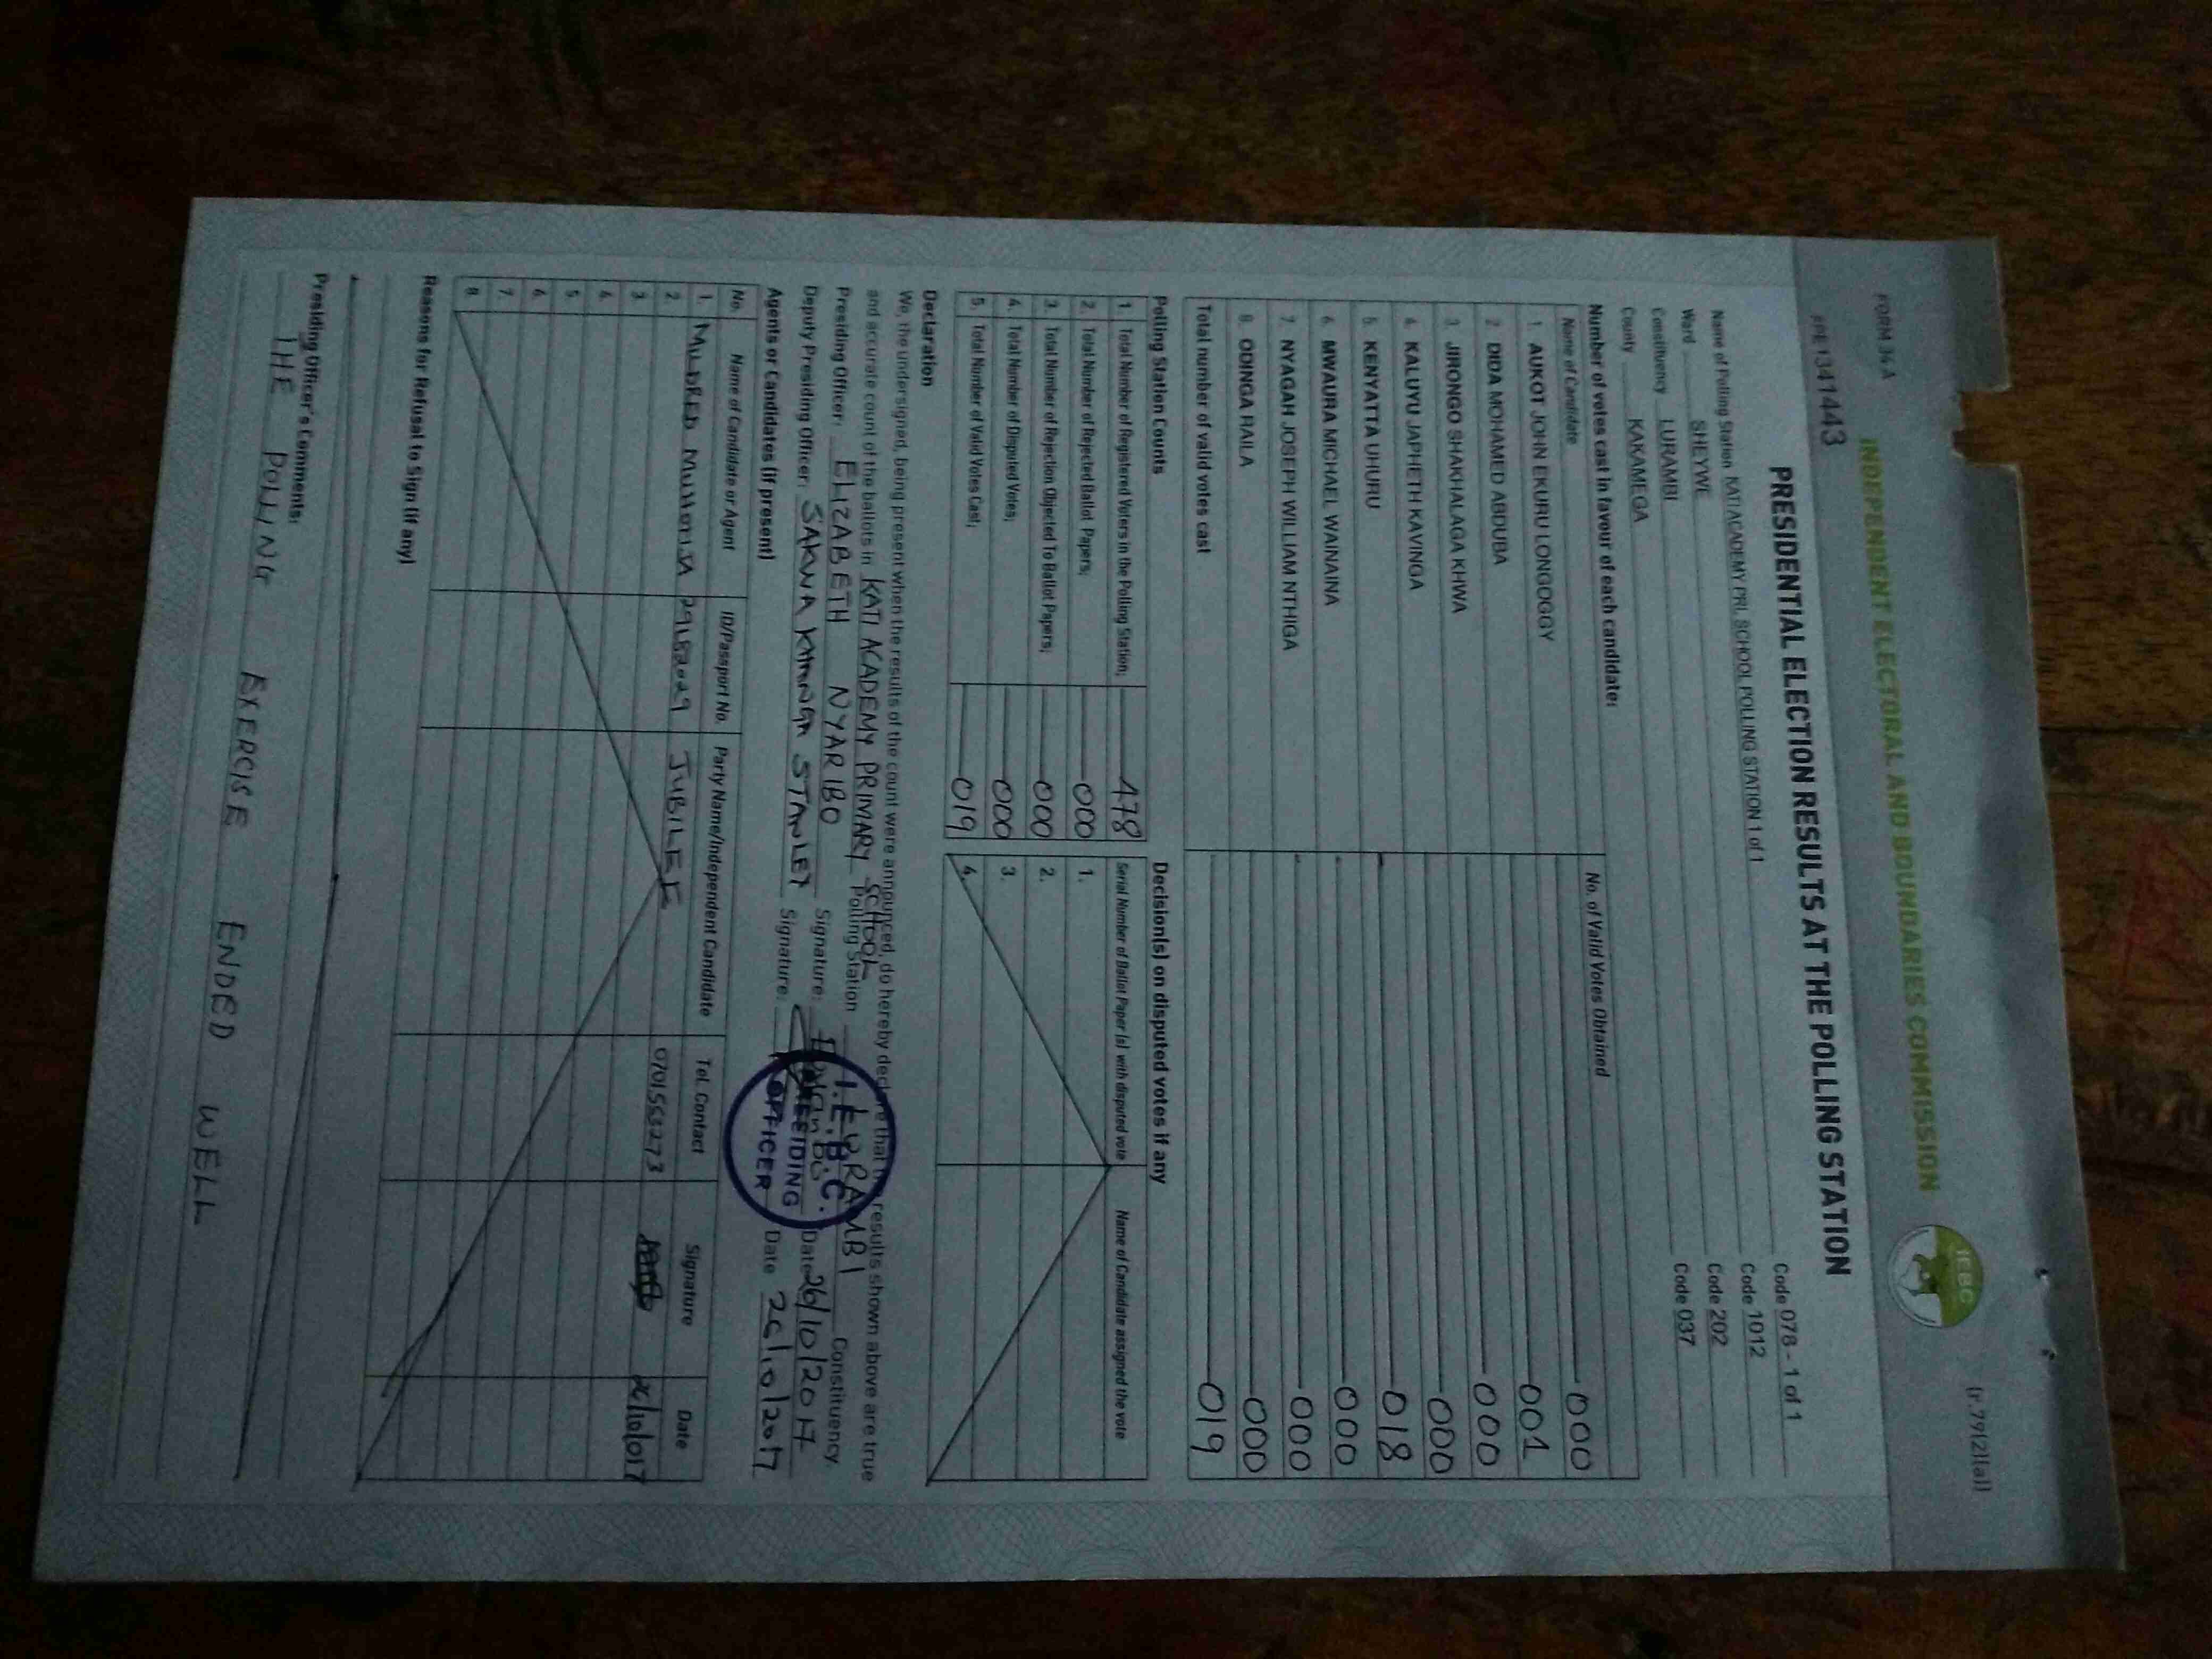 FORM 34A
INDEPENDENT ELECTORAL AND BOUNDARIES COMMISSION
IEBC
(r.79(2)(a))
1341443
PRESIDENTIAL ELECTION RESULTS AT THE POLLING STATION
Name of Polling Station KATI ACADEMY PRI. SCHOOL POLLING STATION 1 of 1 Code 078 - 1 of 1
Ward SHEYWE Code 1012
Constituency LURAMBI Code 202
County KAKAMEGA Code 037
Number of votes cast in favour of each candidate:
Name of Candidate No. of Valid Votes Obtained
1. AUKOT JOHN EKURU LONGOGGY 000
2. DIDA MOHAMED ABDUBA 001
3. JIRONGO SHAKHALAGA KHWA 000
4. KALUYU JAPHETH KAVINGA 000
5. KENYATTA UHURU 018
6. MWAURA MICHAEL WAINAINA 000
7. NYAGAH JOSEPH WILLIAM NTHIGA 000
8. ODINGA RAILA 000
Total number of valid votes cast 019
Polling Station Counts
1. Total Number of Registered Voters in the Polling Station; 478
2. Total Number of Rejected Ballot Papers; 000
3. Total Number of Rejection Objected To Ballot Papers; 000
4. Total Number of Disputed Votes; 000
5. Total Number of Valid Votes Cast; 019
Decision(s) on disputed votes if any
Serial Number of Ballot Paper (s) with disputed vote Name of Candidate assigned the vote
1.
2.
3.
4.
Declaration
We, the undersigned, being present when the results of the count were announced, do hereby declare that the results shown above are true
and accurate count of the ballots in KATI ACADEMY PRIMARY SCHOOL Polling Station LURAMBI Constituency
Presiding Officer: ELIZABETH NYARIBO Signature: Date 26/10/2017
Deputy Presiding Officer: SAKWA STANLEY Signature: Date 26/10/2017
I.E.B.C.
PRESIDING
OFFICER
Agents or Candidates (if present)
No. Name of Candidate or Agent ID/Passport No. Party Name/Independent Candidate Tel. Contact Signature Date
1. MILDRED 29182029 JUBILEE 0701563273 26/10/017
2.
3.
4.
5.
6.
7.
8.
Reasons for Refusal to Sign (if any)
Presiding Officer's Comments:
THE POLLING EXERCISE ENDED WELL